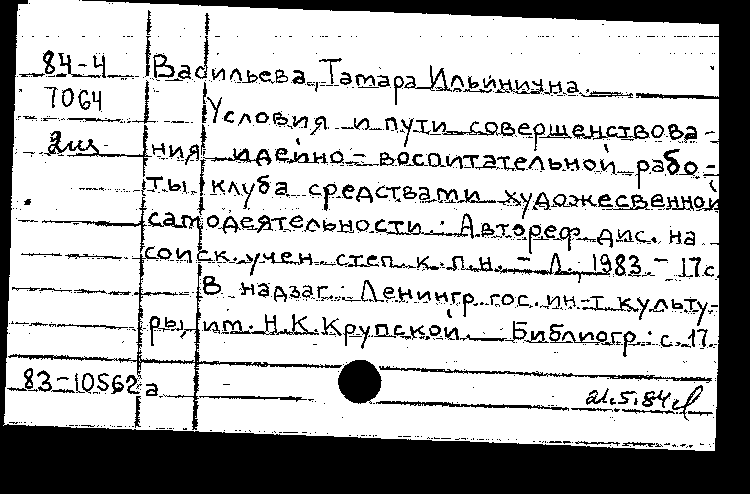 84-4 Васильева, Тамара Ильинична.
7064 Условия и пути совершенствова-
2из ния идейно-воспитательной рабо-
ты клуба средствами художесвенной
самодеятельности: Автореф. дис. на
соиск. учен. степ. к.п.н. - Л., 1983. - 17 с.
В надзаг.: Ленингр. гос. ин-т культу-
ры им. Н.К.Крупской. Библиогр.: с. 17.
83-10562а 21.5.84